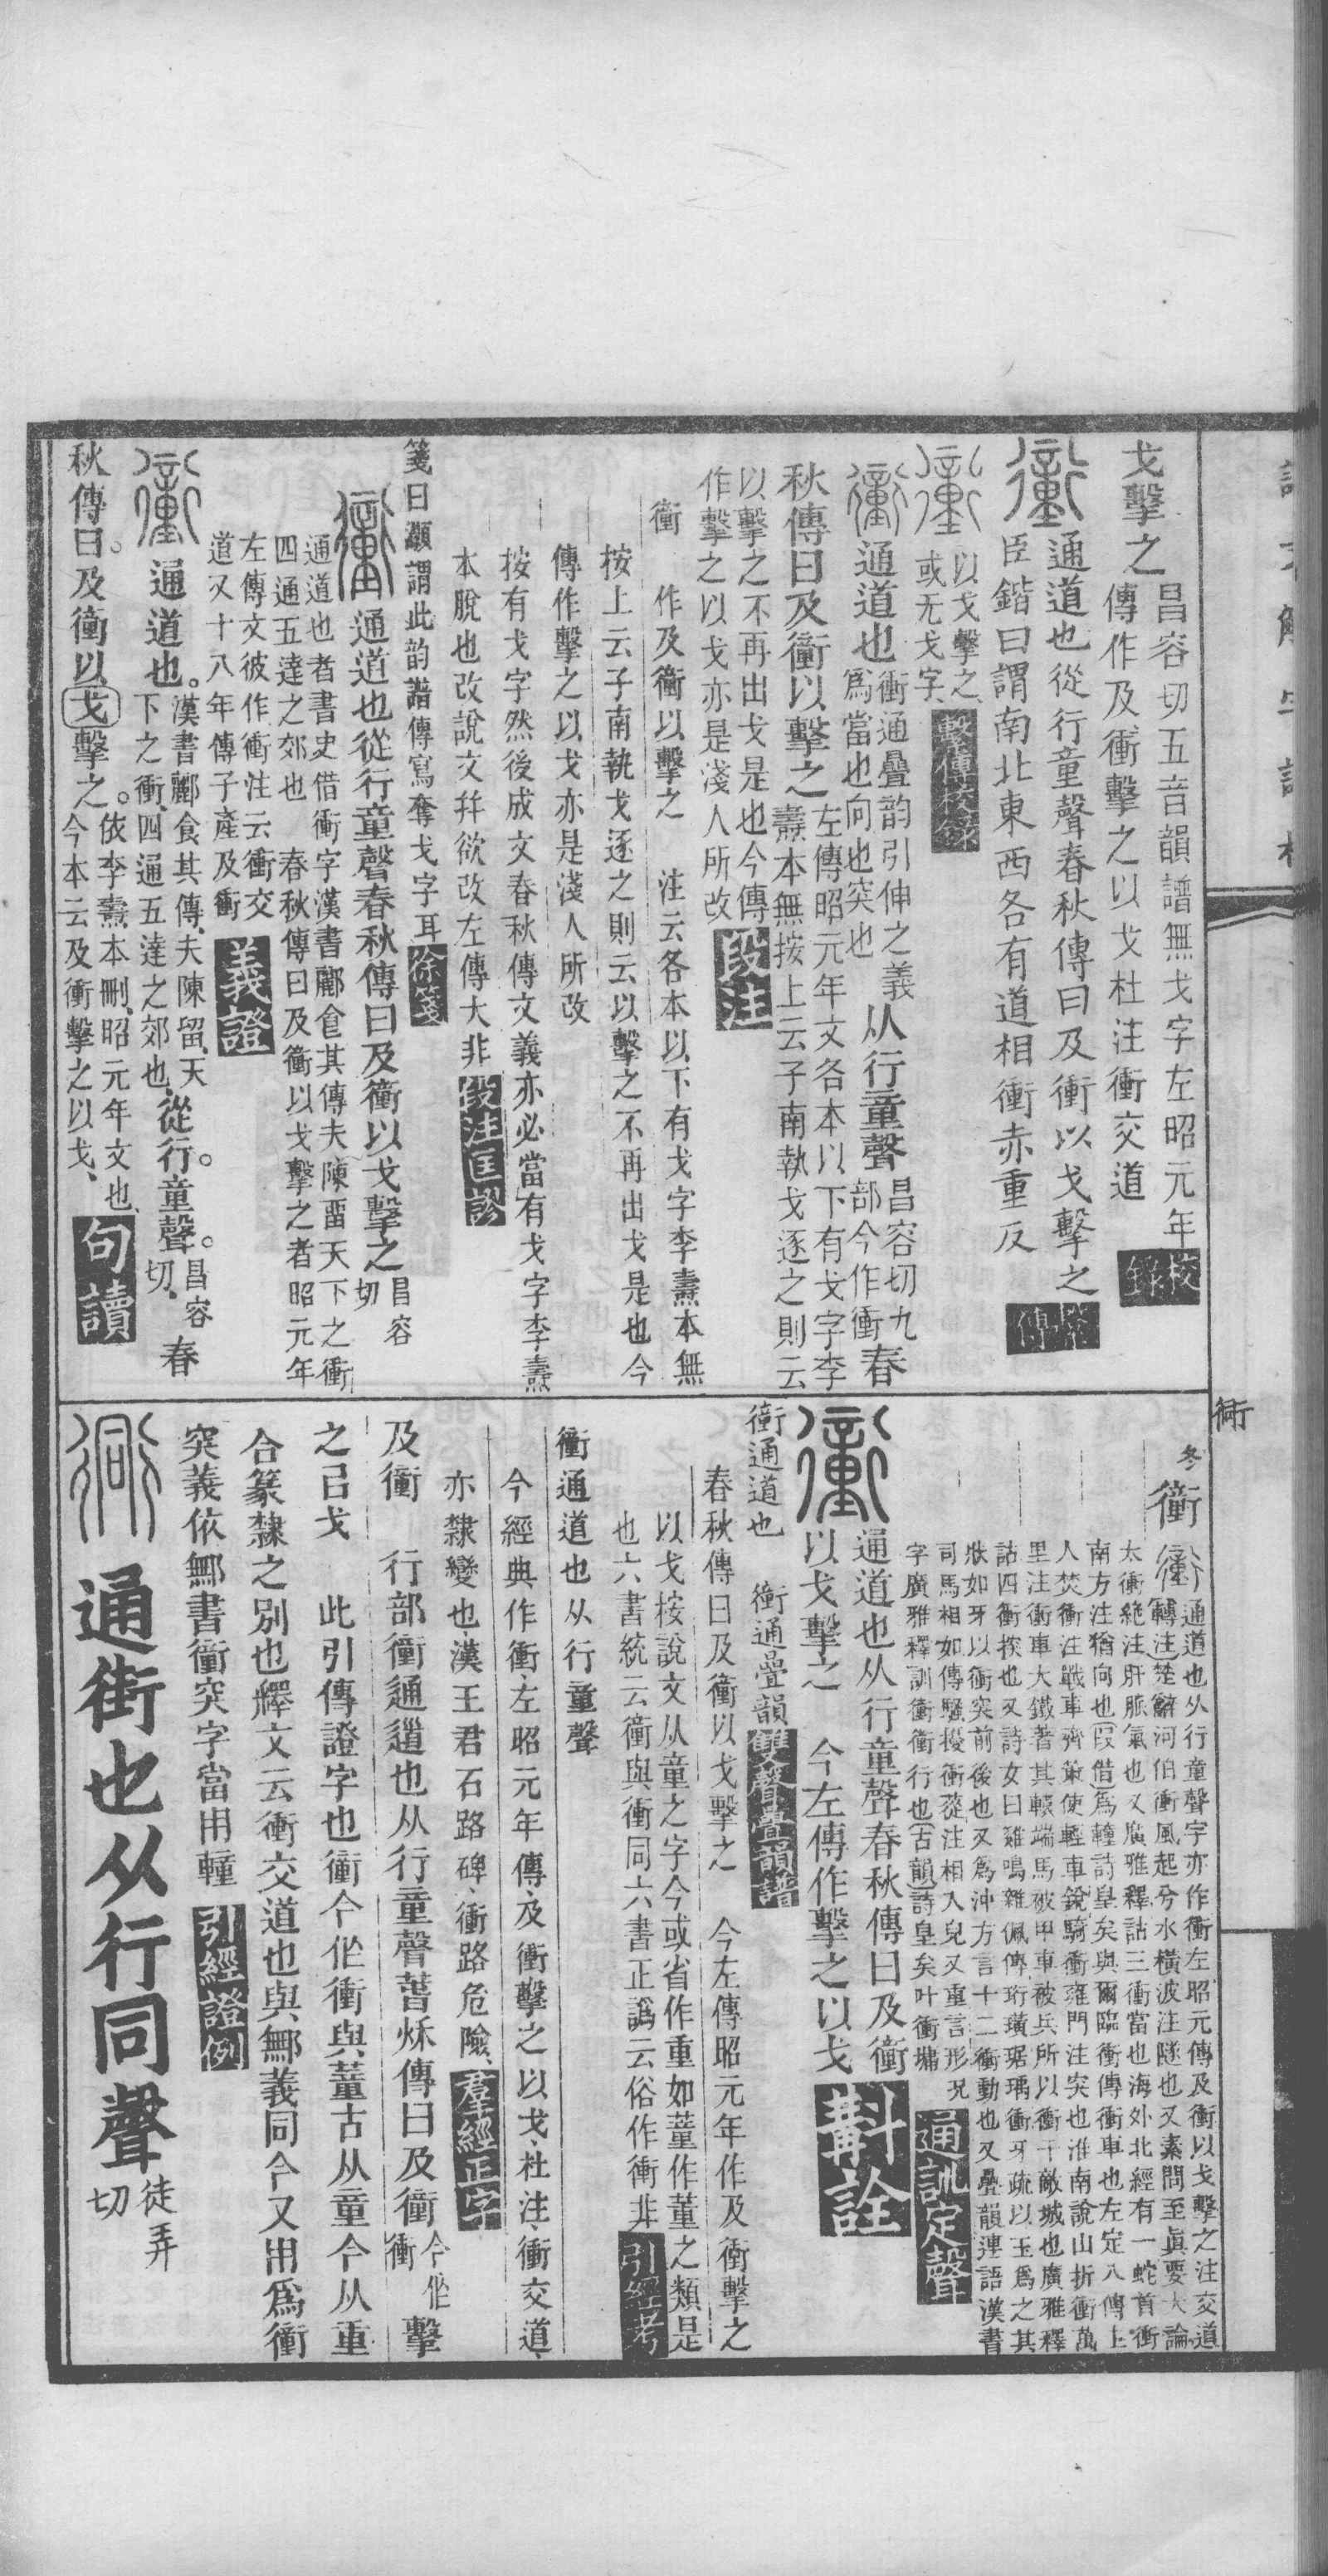 戈擊之
昌容切五音韻譜無戈字左昭元年
傳作及衝擊之以戈杜注衝交道
校錄
通道也從行童聲春秋傳曰及衝以戈擊之
臣鍇曰謂南北東西各有道相衝赤重反
繫傳
以戈擊之
或无戈字
繫傳校錄
通道也
衝通疊韵引伸之義
爲當也向也突也
从行童聲
昌容切九
部今作衝
春
秋傳曰及衝以擊之
左傳昭元年文各本以下有戈字李
燾本無按上云子南執戈逐之則云
以擊之不再出戈是也今傳
作擊之以戈亦是淺人所改
段注
衝　作及衝以擊之　注云各本以下有戈字李燾本無
按上云子南執戈逐之則云以擊之不再出戈是也今
傳作擊之以戈亦是淺人所改
按有戈字然後成文春秋傳文義亦必當有戈字李燾
本脫也改說文幷欲改左傳大非
段注匡謬
箋曰灝謂此韵譜傳寫奪戈字耳
徐箋
通道也從行童聲春秋傳曰及衝以戈擊之
昌容
切
通道也者書史借衝字漢書酈食其傳夫陳畱天下之衝
四通五達之郊也　春秋傳曰及衝以戈擊之者昭元年
左傳文彼作衝注云衝交
道又十八年傳子產及衝
義證
通道也。
漢書酈食其傳、夫陳留、天
下之衝、四通五達之郊也、
從行。童聲。
昌容
切、
春
秋傳曰。及衝以戈擊之。
依李燾本刪、昭元年文也、
今本云及衝擊之以戈、
句讀
衕
冬
衝
通道也从行童聲字亦作衝左昭元傳及衝以戈擊之注交道
轉注楚辭河伯衝風起兮水橫波注隧也又素問至眞要大論
太衝絶注肝脈氣也又廣雅釋詁三衝當也海外北經有一蛇首衝
南方注猶向也假借爲䡴詩皇矣與爾臨衝傳衝車也左定八傳上
人焚衝注戰車齊策使輕車銳騎衝雍門注突也淮南說山折衝萬
里注衝車大鐵著其轅端馬被甲車被兵所以衝于敵城也廣雅釋
詁四衝揬也又詩女曰雞鳴雜佩傳珩璜琚瑀衝牙疏以玉爲之其
狀如牙以衝突前後也又爲沖方言十二衝動也又疊韻連語漢書
司馬相如傳騷擾衝蓯注相入皃又重言形况
字廣雅釋訓衝衝行也古韻詩皇矣叶衝墉
通訓定聲
通道也从行童聲春秋傳曰及衝
以戈擊之　今左傳作擊之以戈
斠詮
衝通道也　衝通疊韻
雙聲疊韻譜
春秋傳曰及衝以戈擊之　今左傳昭元年作及衝擊之
以戈按說文从童之字今或省作重如蕫作董之類是
也六書統云衝與衝同六書正譌云俗作衝非
引經考
衝通道也从行童聲
今經典作衝、左昭元年傳、及衝擊之以戈、杜注、衝交道、
亦隸變也、漢王君石路碑、衝路危險、
羣經正字
及衝　行部衝通道也从行童聲萅秌傳曰及衝
今作
衝
擊
之㠯戈　此引傳證字也衝今作衝與蕫古从童今从重
合篆隸之別也釋文云衝交道也與鄦義同今又用爲衝
突義依鄦書衝突字當用䡴
引經證例
通街也从行同聲
徒弄
切